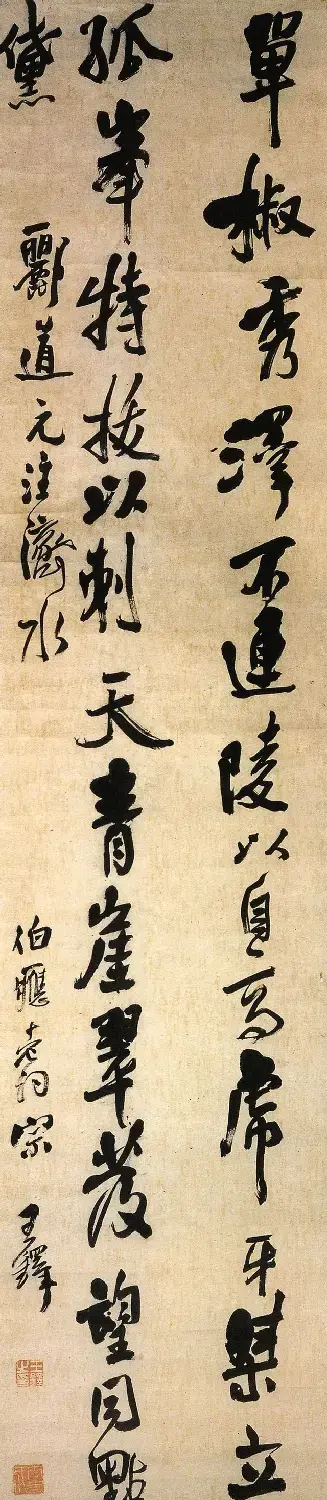 單椒秀澤不連陵以自高虎牙桀立
孤峯特拔以刺天青崖翠發望同點
黛
酈道元注濟水
伯應老詞宗 王鐸